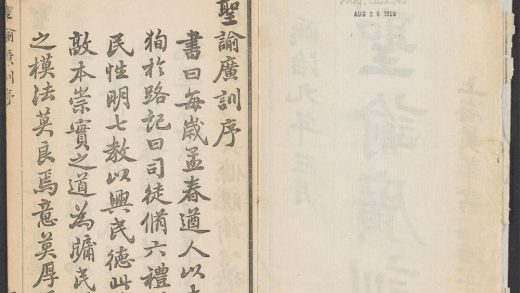 AUG 2 6 1950
聖諭廣訓
聖諭廣訓序
書曰每歲孟春遒人以
狥於路記曰司徒脩六禮
民性明七教以興民德此
敦本崇實之道為牖民
之模法莫良焉意莫厚
聖諭廣訓序